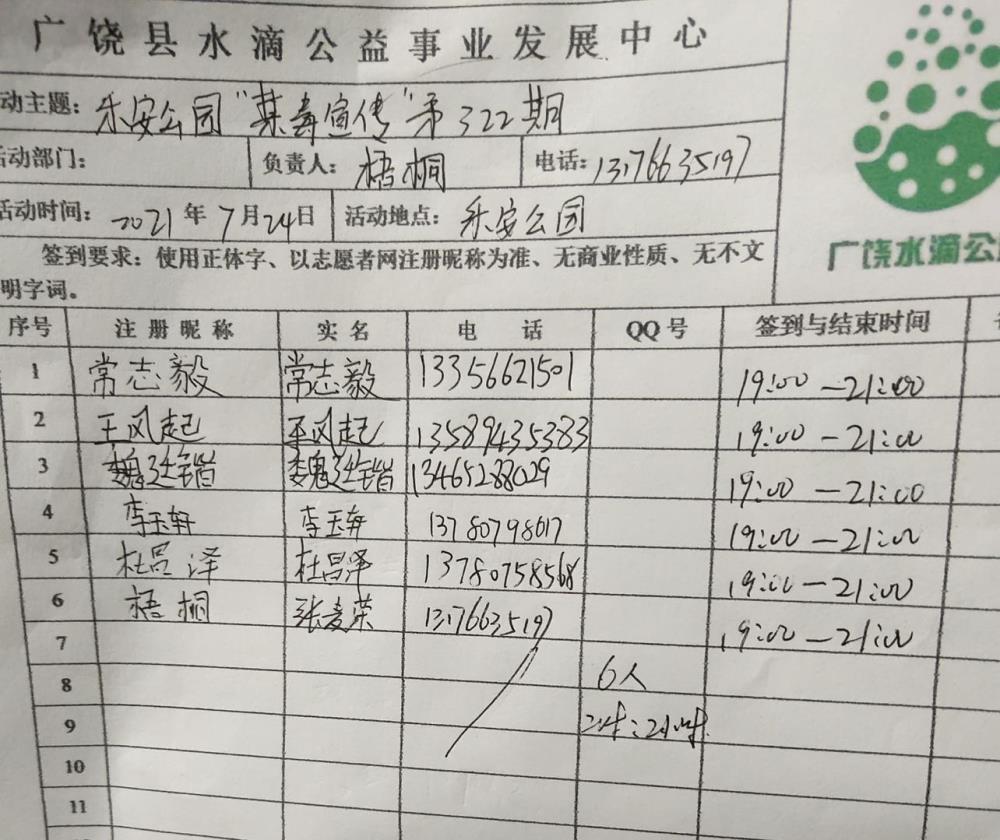 广饶县水滴公益事业发展中心
动主题: 乐安公园“禁毒宣传”第322期
活动部门: 负责人: 梧桐 电话: 13176635197
活动时间: 2021年7月24日 活动地点: 乐安公园
签到要求: 使用正体字、以志愿者网注册昵称为准、无商业性质、无不文
明字词。
广饶水滴公
序号 注册昵称 实名 电话 QQ号 签到与结束时间
1 常志毅 常志毅 13356621501 19:00—21:00
2 王风起 王风起 13589435383 19:00—21:00
3 魏延锴 魏延锴 13465288029 19:00—21:00
4 李玉轩 李玉轩 13780798617 19:00—21:00
5 杜昌泽 杜昌泽 13780758568 19:00—21:00
6 梧桐 张麦荣 13176635197 19:00—21:00
7
8 6人
9
10
11